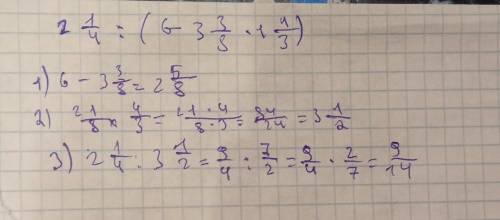 2 1/4 : (6 - 3 3/8 · 1 1/3)
1) 6 - 3 3/8 = 2 5/8
2) 21/8 × 4/3 = 21·4/8·3 = 84/24 = 3 1/2
3) 2 1/4 : 3 1/2 = 9/4 : 7/2 = 9/4 · 2/7 = 9/14